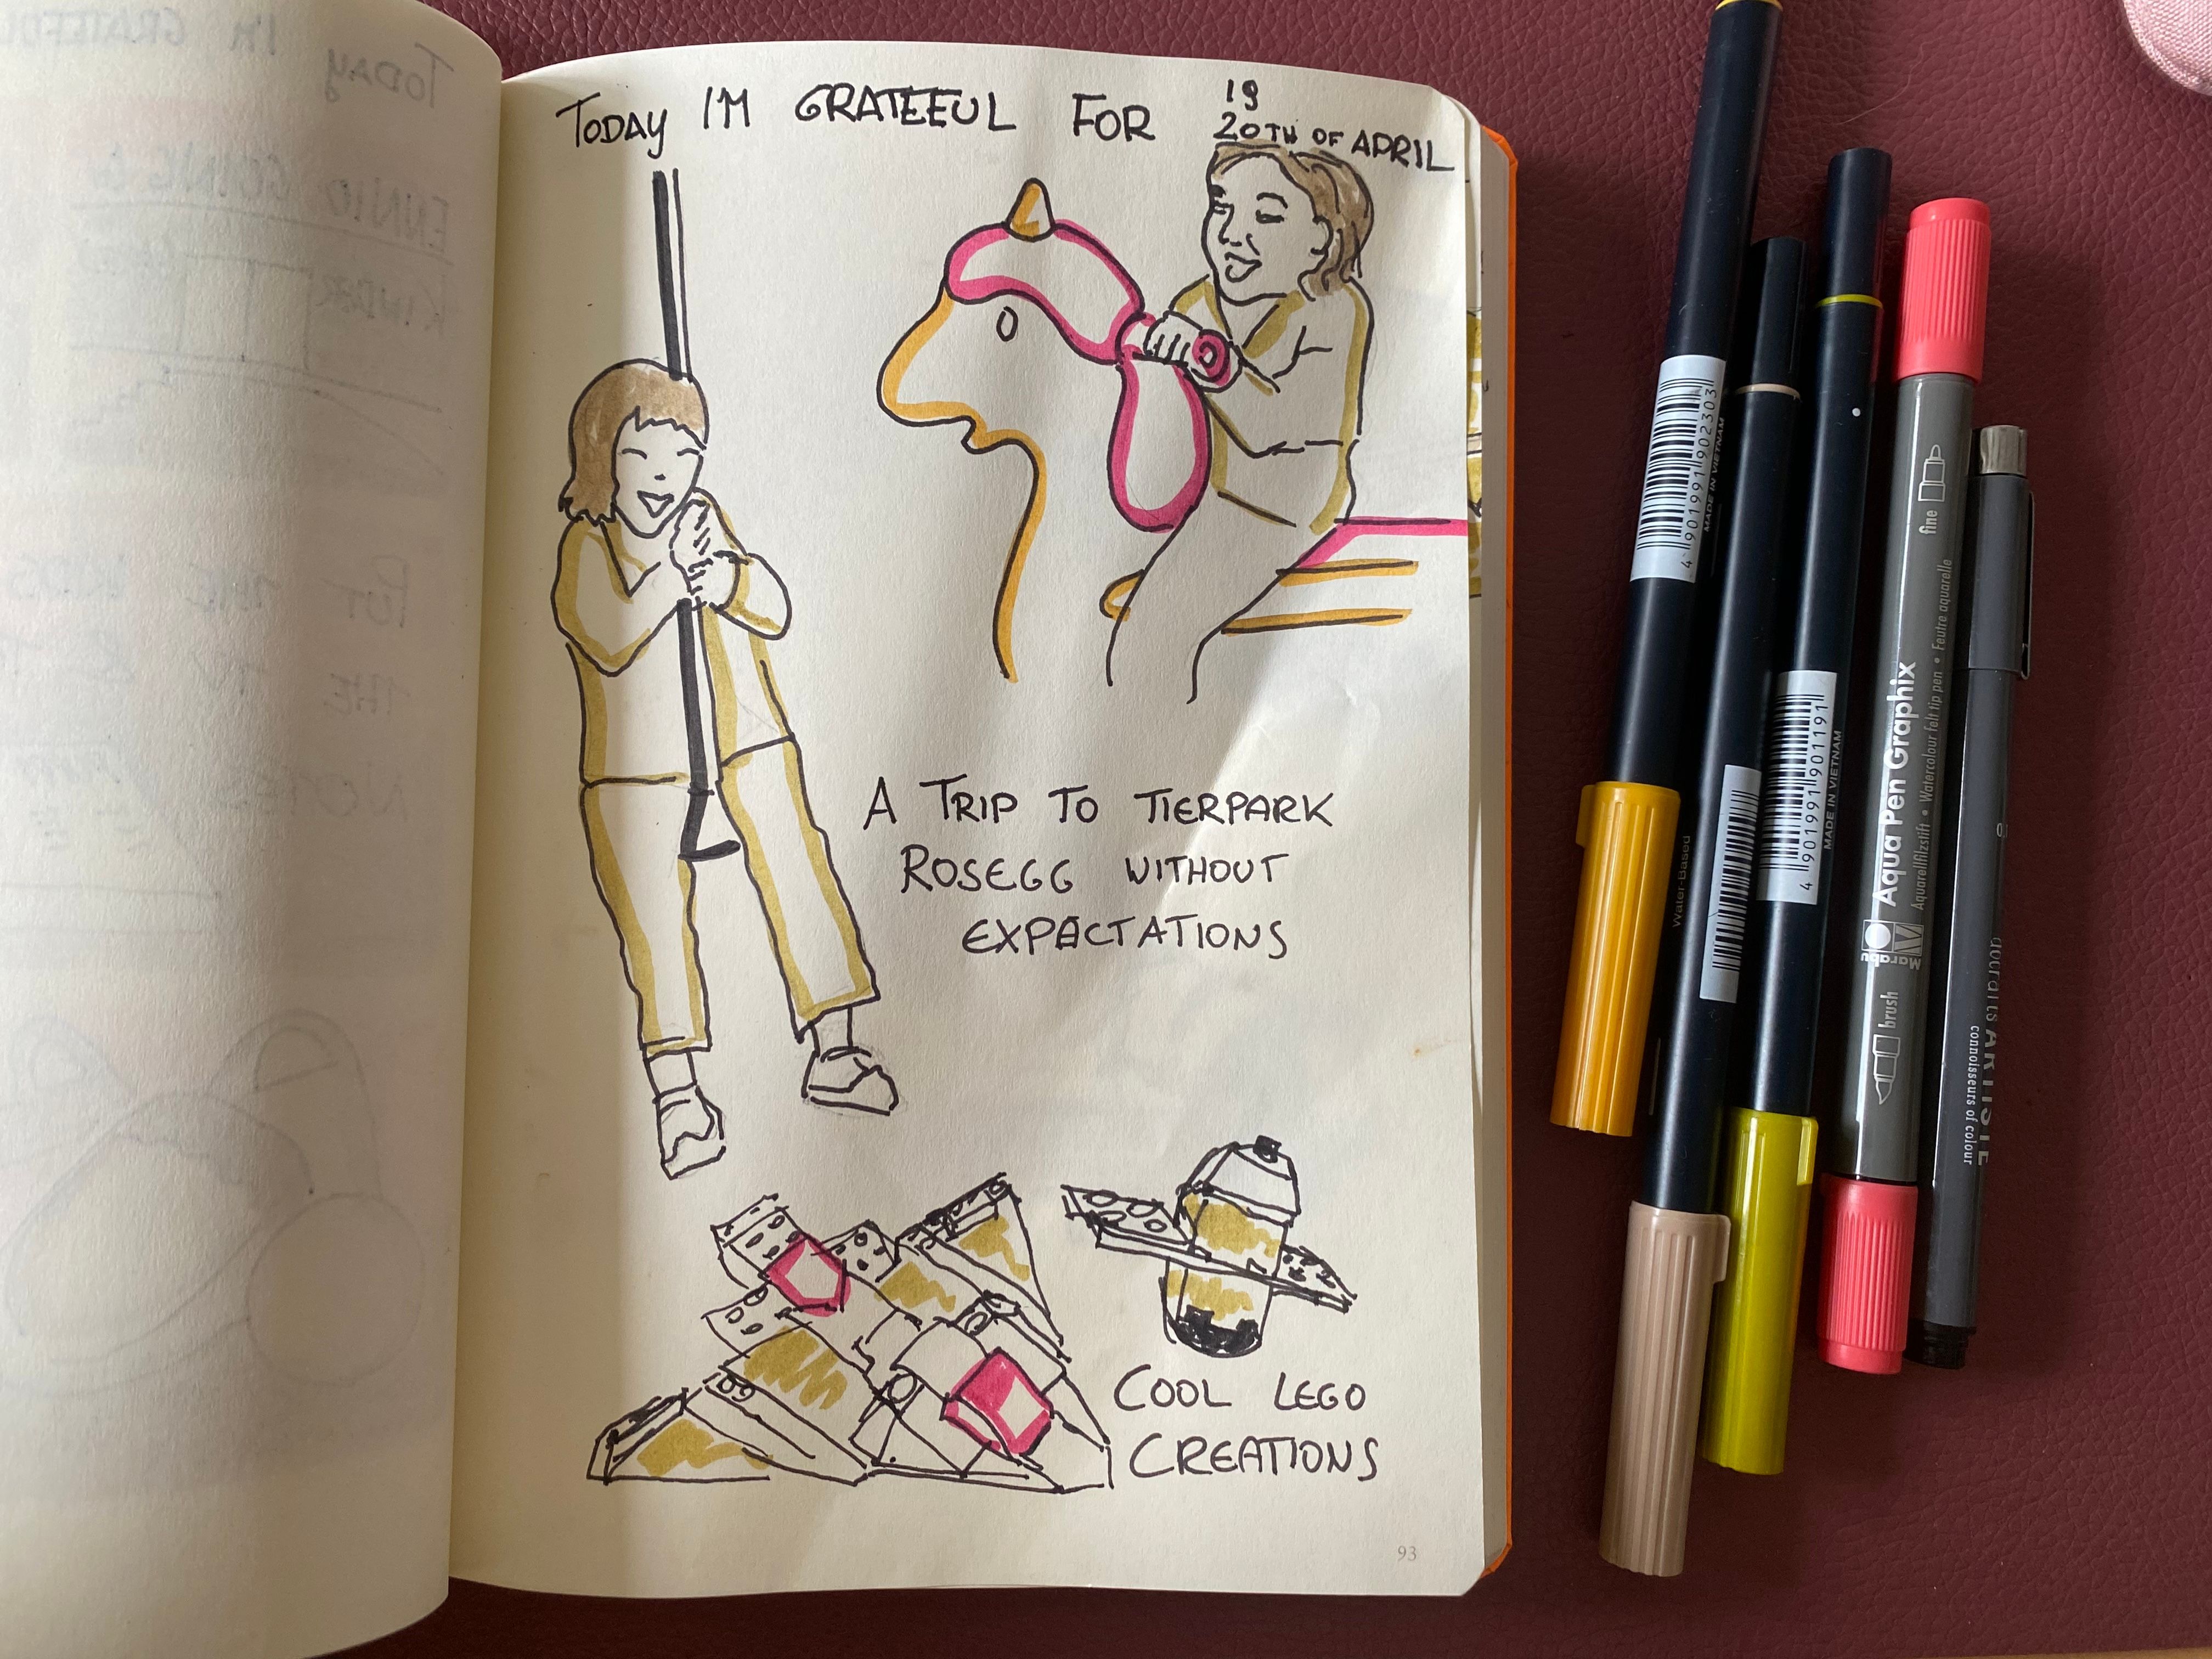 TODAY I'M GRATEFUL FOR
19
20TH OF APRIL
A TRIP TO TIERPARK
ROSEGG WITHOUT
EXPECTATIONS
COOL LEGO
CREATIONS
93
4 901991 902303
MADE IN VIETNAM
Water-Based
4 901991 901191
MADE IN VIETNAM
fine
Aqua Pen Graphix
Aquarellfilzstift • Watercolour felt tip pen • Feutre aquarelle
Marabu
brush
docrafts ARTISTE
connoisseurs of colour
TODAY I'M GRATEFUL
ENNIO GOING
KINDER
PUT THE
THE